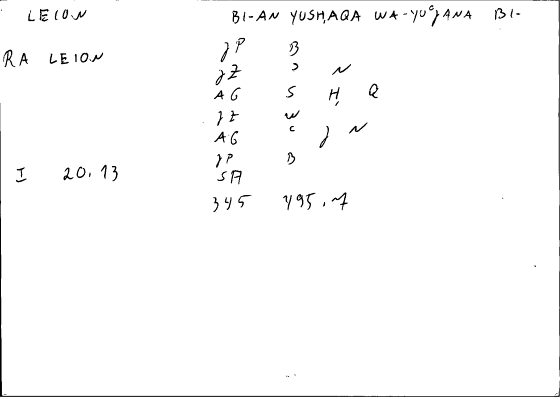 LEION BI-AN YUSḤAQA WA-YUʿJANA BI-
RA LEION JP B
JZ ʾ N
AG S Ḥ Q
JZ W
AG ʿ J N
JP B
I 20.13 SA
345 495.7